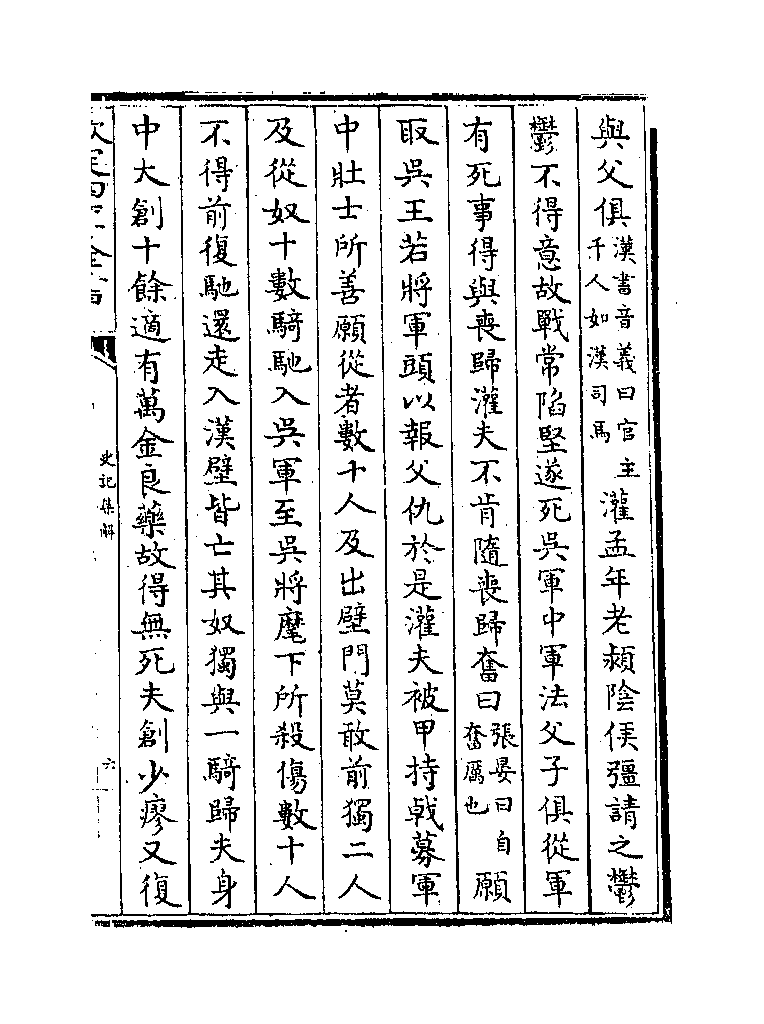 與父俱漢書音義曰官主千人如漢司馬灌孟年老潁陰侯彊請之鬱
鬱不得意故戰常陷堅遂死吳軍中軍法父子俱從軍
有死事得與喪歸灌夫不肯隨喪歸奮曰張晏曰自奮厲也願
取吳王若將軍頭以報父仇於是灌夫被甲持戟募軍
中壯士所善願從者數十人及出壁門莫敢前獨二人
及從奴十數騎馳入吳軍至吳將麾下所殺傷數十人
不得前復馳還走入漢壁皆亡其奴獨與一騎歸夫身
中大創十餘適有萬金良藥故得無死夫創少瘳又復
史記集解
六